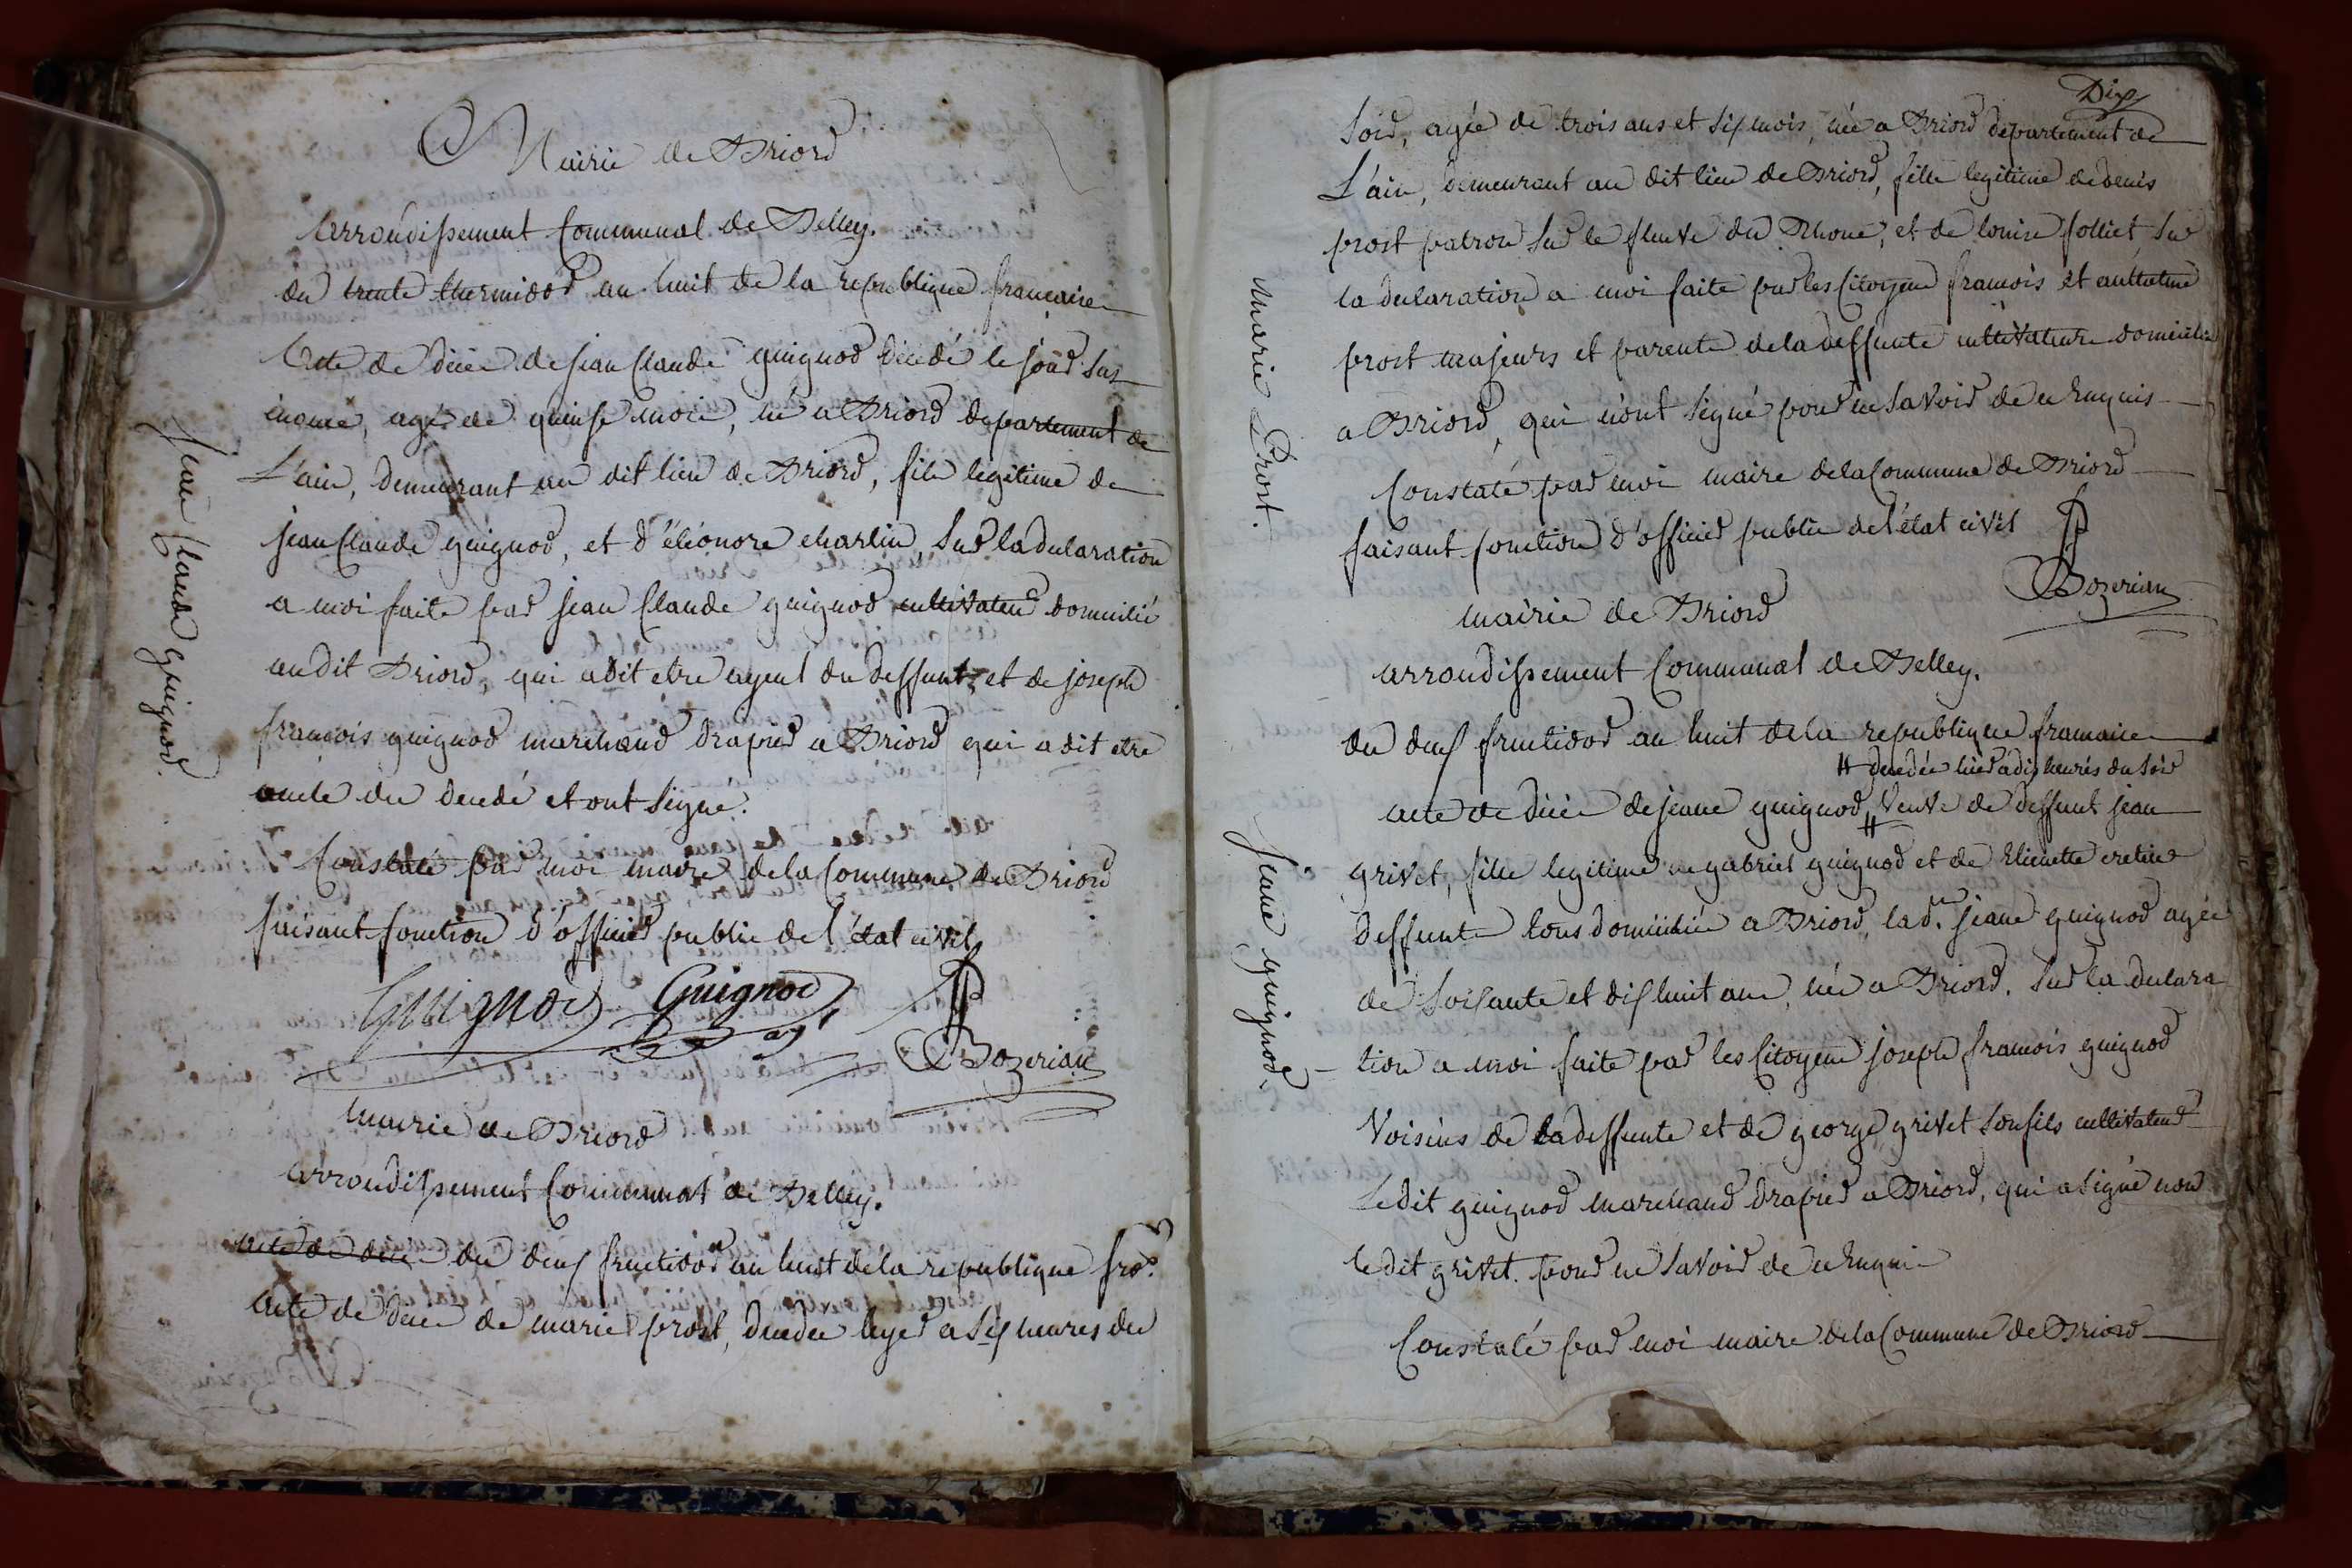 Mairie de Briord
arrondissement Communal de Belley.
du trente thermidor an huit de la republique francaise
Acte de décès de jean Claude guignod décédé le jour sus
énoncé, agé de quinse mois, né a Briord departement de
L'ain, demeurant au dit lieu de Briord, fils legitime de
jean Claude guignod, et d'éléonore charlin, sur la declaration
a moi faite par jean Claude guignod cultivateur domicilié
au dit Briord, qui a dit etre ayeul du deffunt, et de joseph
francois guignod marchand drapier a Briord qui a dit etre
oncle du decedé et ont signé.
Constaté par moi maire de la Commune de Briord
faisant fonction d'officier public de l'état civil
Guignod Guignod
Bozerian
Jean Claude Guignod.
mairie de Briord
arrondissement Communal de Belley.
acte de décès du deux fructidor an huit de la republique fr.se
acte de décès de marie prost, decedée hyer a six heures du
Dix
soir, agée de trois ans et six mois, née a Briord departement de
L'ain, demeurant au dit lieu de Briord, fille legitime de denis
prost patron sur le fleuve du Rhone, et de louise folliet sur
la declaration a moi faite par les Citoyens francois et anthelme
prost majeurs et parents de la deffunte cultivateurs domiciliés
a Briord, qui n'ont signé pour ne savoir de ce enquis
Constaté par moi maire de la Commune de Briord
faisant fonction d'officier public de l'état civil
Bozerian
Marie Prost.
mairie de Briord
arrondissement Communal de Belley.
du deux fructidor an huit de la republique francaise
# decedée hier a dix heures du soir
acte de décès de jeane guignod # Veuve de deffunt jean
grivet, fille legitime de gabriel guignod et de Elienette cretin
deffunts tous domiciliés a Briord, lad.te jeane guignod agée
de soixante et dix huit ans, née a Briord. sur la declara
tion a moi faite par les Citoyens joseph francois guignod
Voisins de la deffunte et de george grivet son fils cultivateur
Ledit guignod marchand drapier a Briord, qui a signé non
le dit grivet. pour ne savoir de ce enquis
Constaté par moi maire de la Commune de Briord
Jeane guignod.